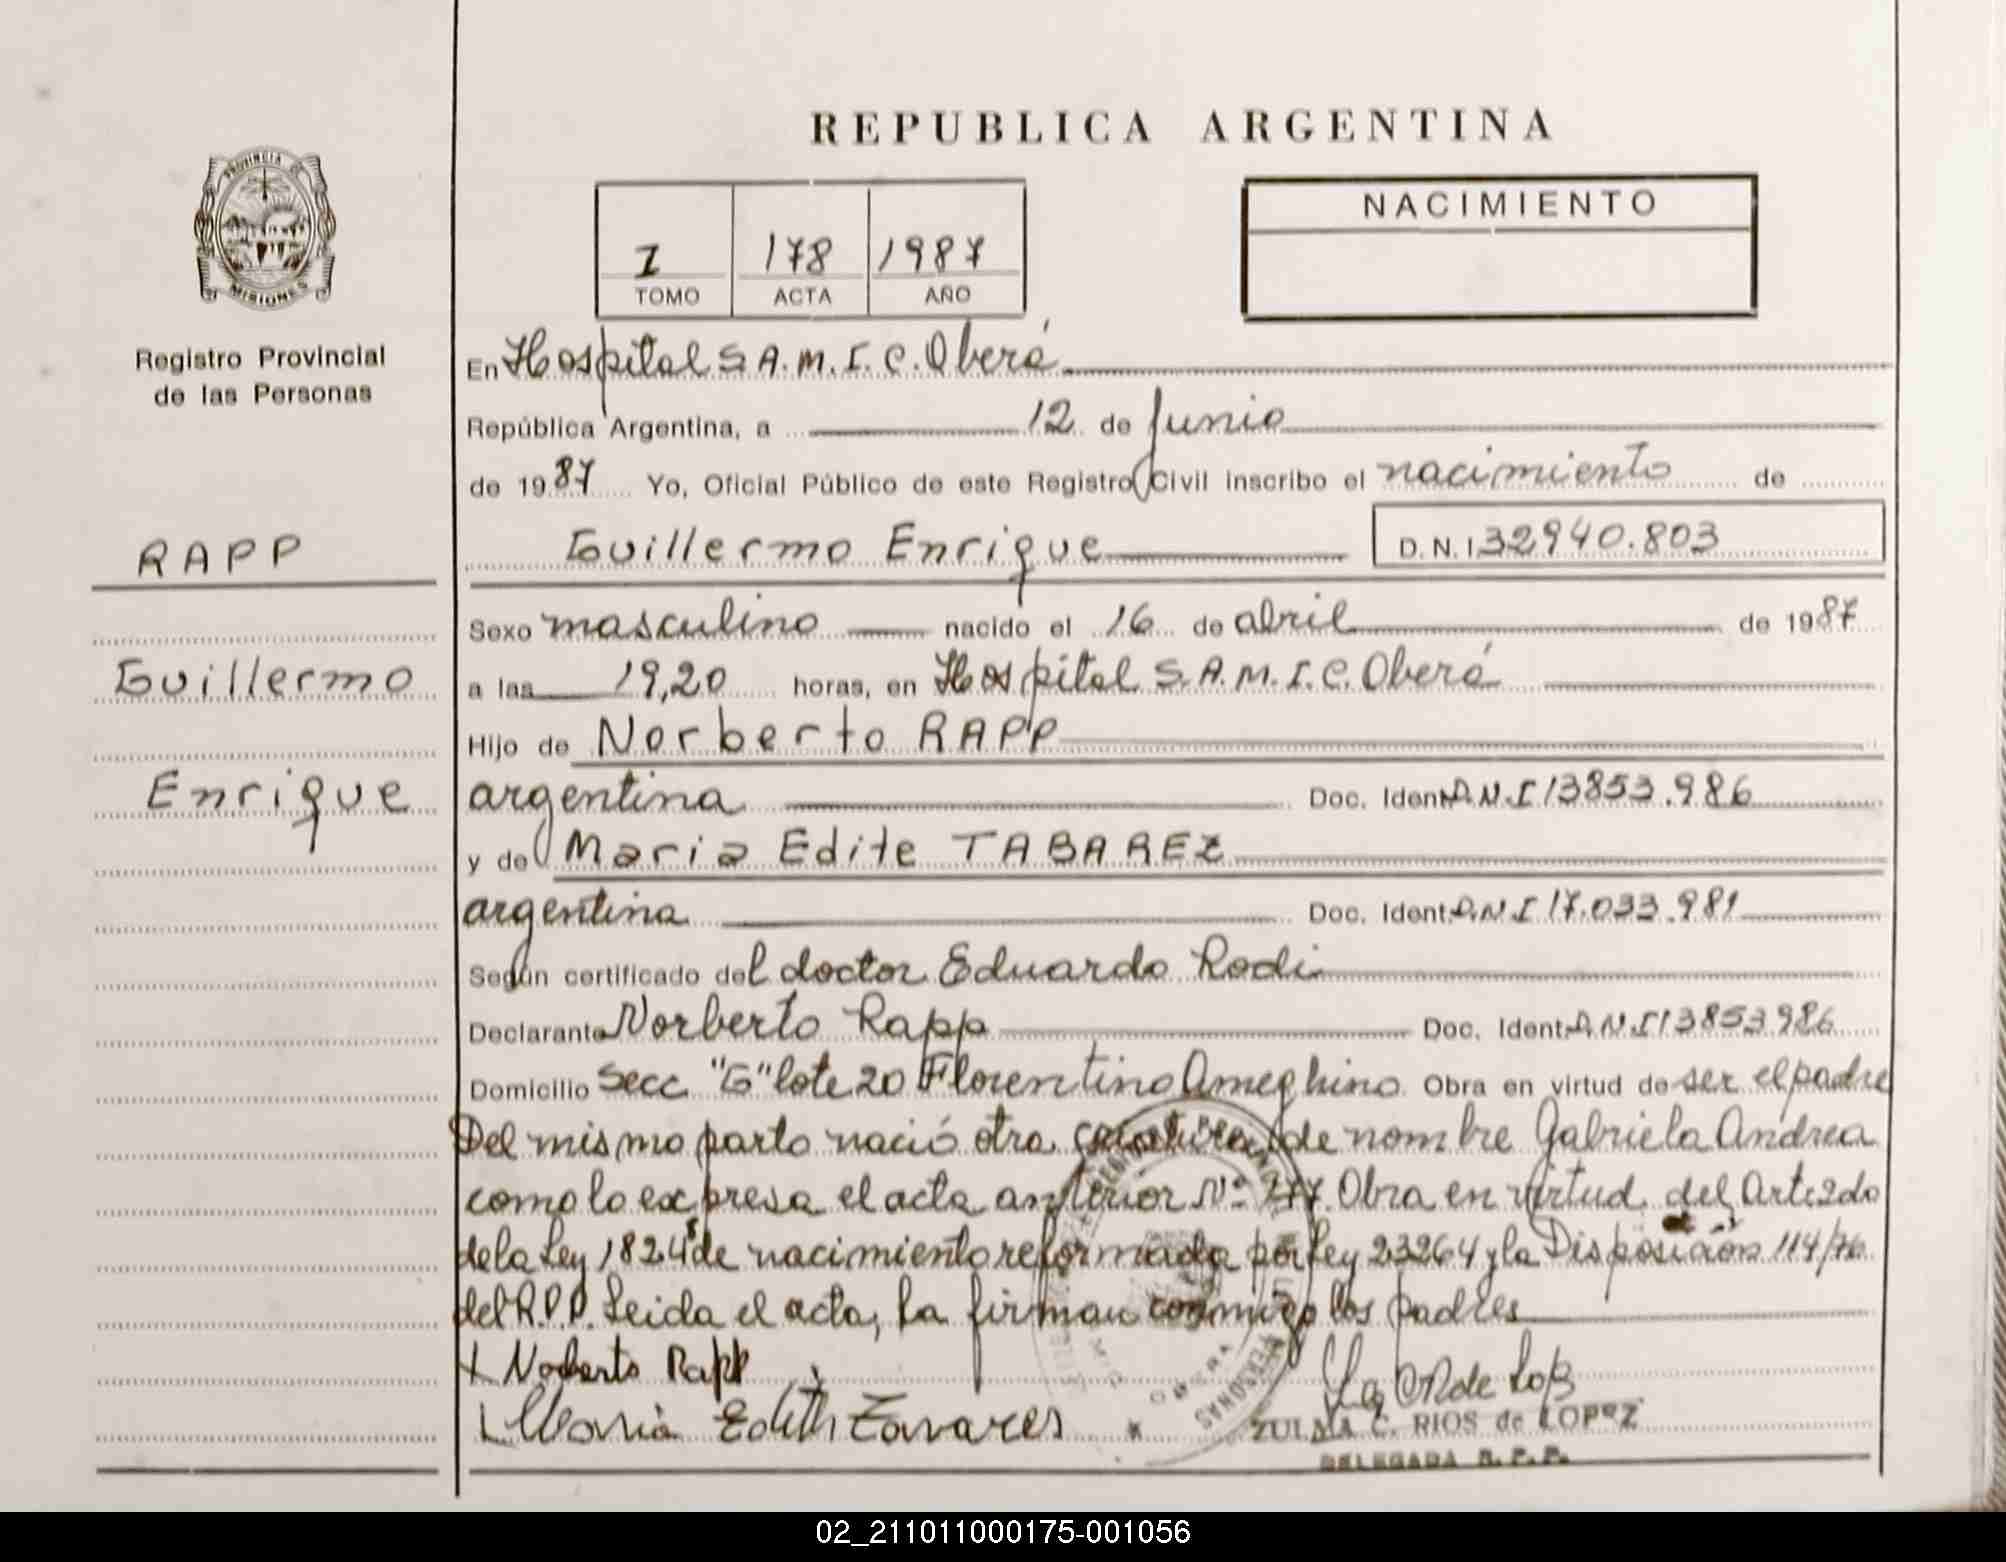 REPUBLICA ARGENTINA
PROVINCIA DE
MISIONES
Registro Provincial
de las Personas
I 178 1987
TOMO ACTA AÑO
NACIMIENTO
En Hospital S.A.M.I.C. Oberá
República Argentina, a 12 de Junio
de 1987 Yo, Oficial Público de este Registro Civil inscribo el nacimiento de
RAPP
Guillermo Enrique D.N.I 32940.803
Sexo masculino nacido el 16 de abril de 1987
Guillermo
a las 19,20 horas, en Hospital S.A.M.I.C. Oberá
Hijo de Norberto RAPP
Enrique
argentina Doc. Ident. D.N.I 13853.986
y de Maria Edite TABAREZ
argentina Doc. Ident. D.N.I 17.033.981
Según certificado del doctor Eduardo Rodi
Declarante Norberto Rapp Doc. Ident. D.N.I 13853986
Domicilio Secc "G" lote 20 Florentino Ameghino Obra en virtud de ser el padre
Del mismo parto nació otra criatura de nombre Gabriela Andrea
como lo expresa el acta anterior Nº 177. Obra en virtud del Art 2do
de la Ley 18248 de nacimiento reformada por Ley 23264 y la Disposición 114/76
del R.P.P. Leida el acta, la firman conmigo los padres
Norberto Rapp
Maria Edith Tavares
ZULMA C. RIOS de LOPEZ
DELEGADA R.P.P.
02_211011000175-001056